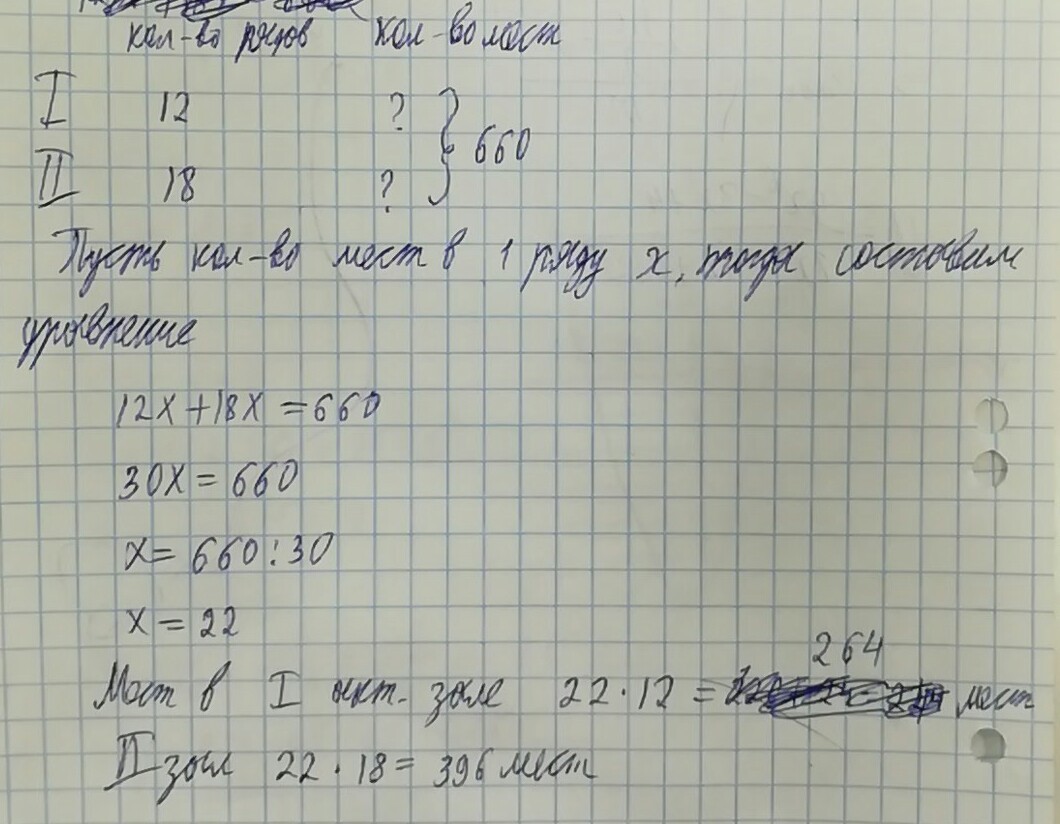 кол-во рядов кол-во мест
I 12 ?
660
II 18 ?
Пусть кол-во мест в 1 ряду x, тогда составим
уравнение
12x+18x=660
30x=660
x=660:30
x=22
264
Мест в I акт. зале 22·12= мест
II зал 22·18=396 мест